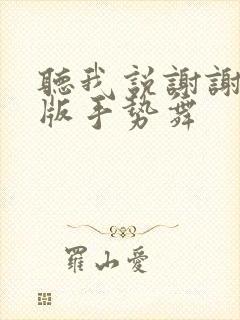 聽我說謝謝
版手勢舞
羅山愛